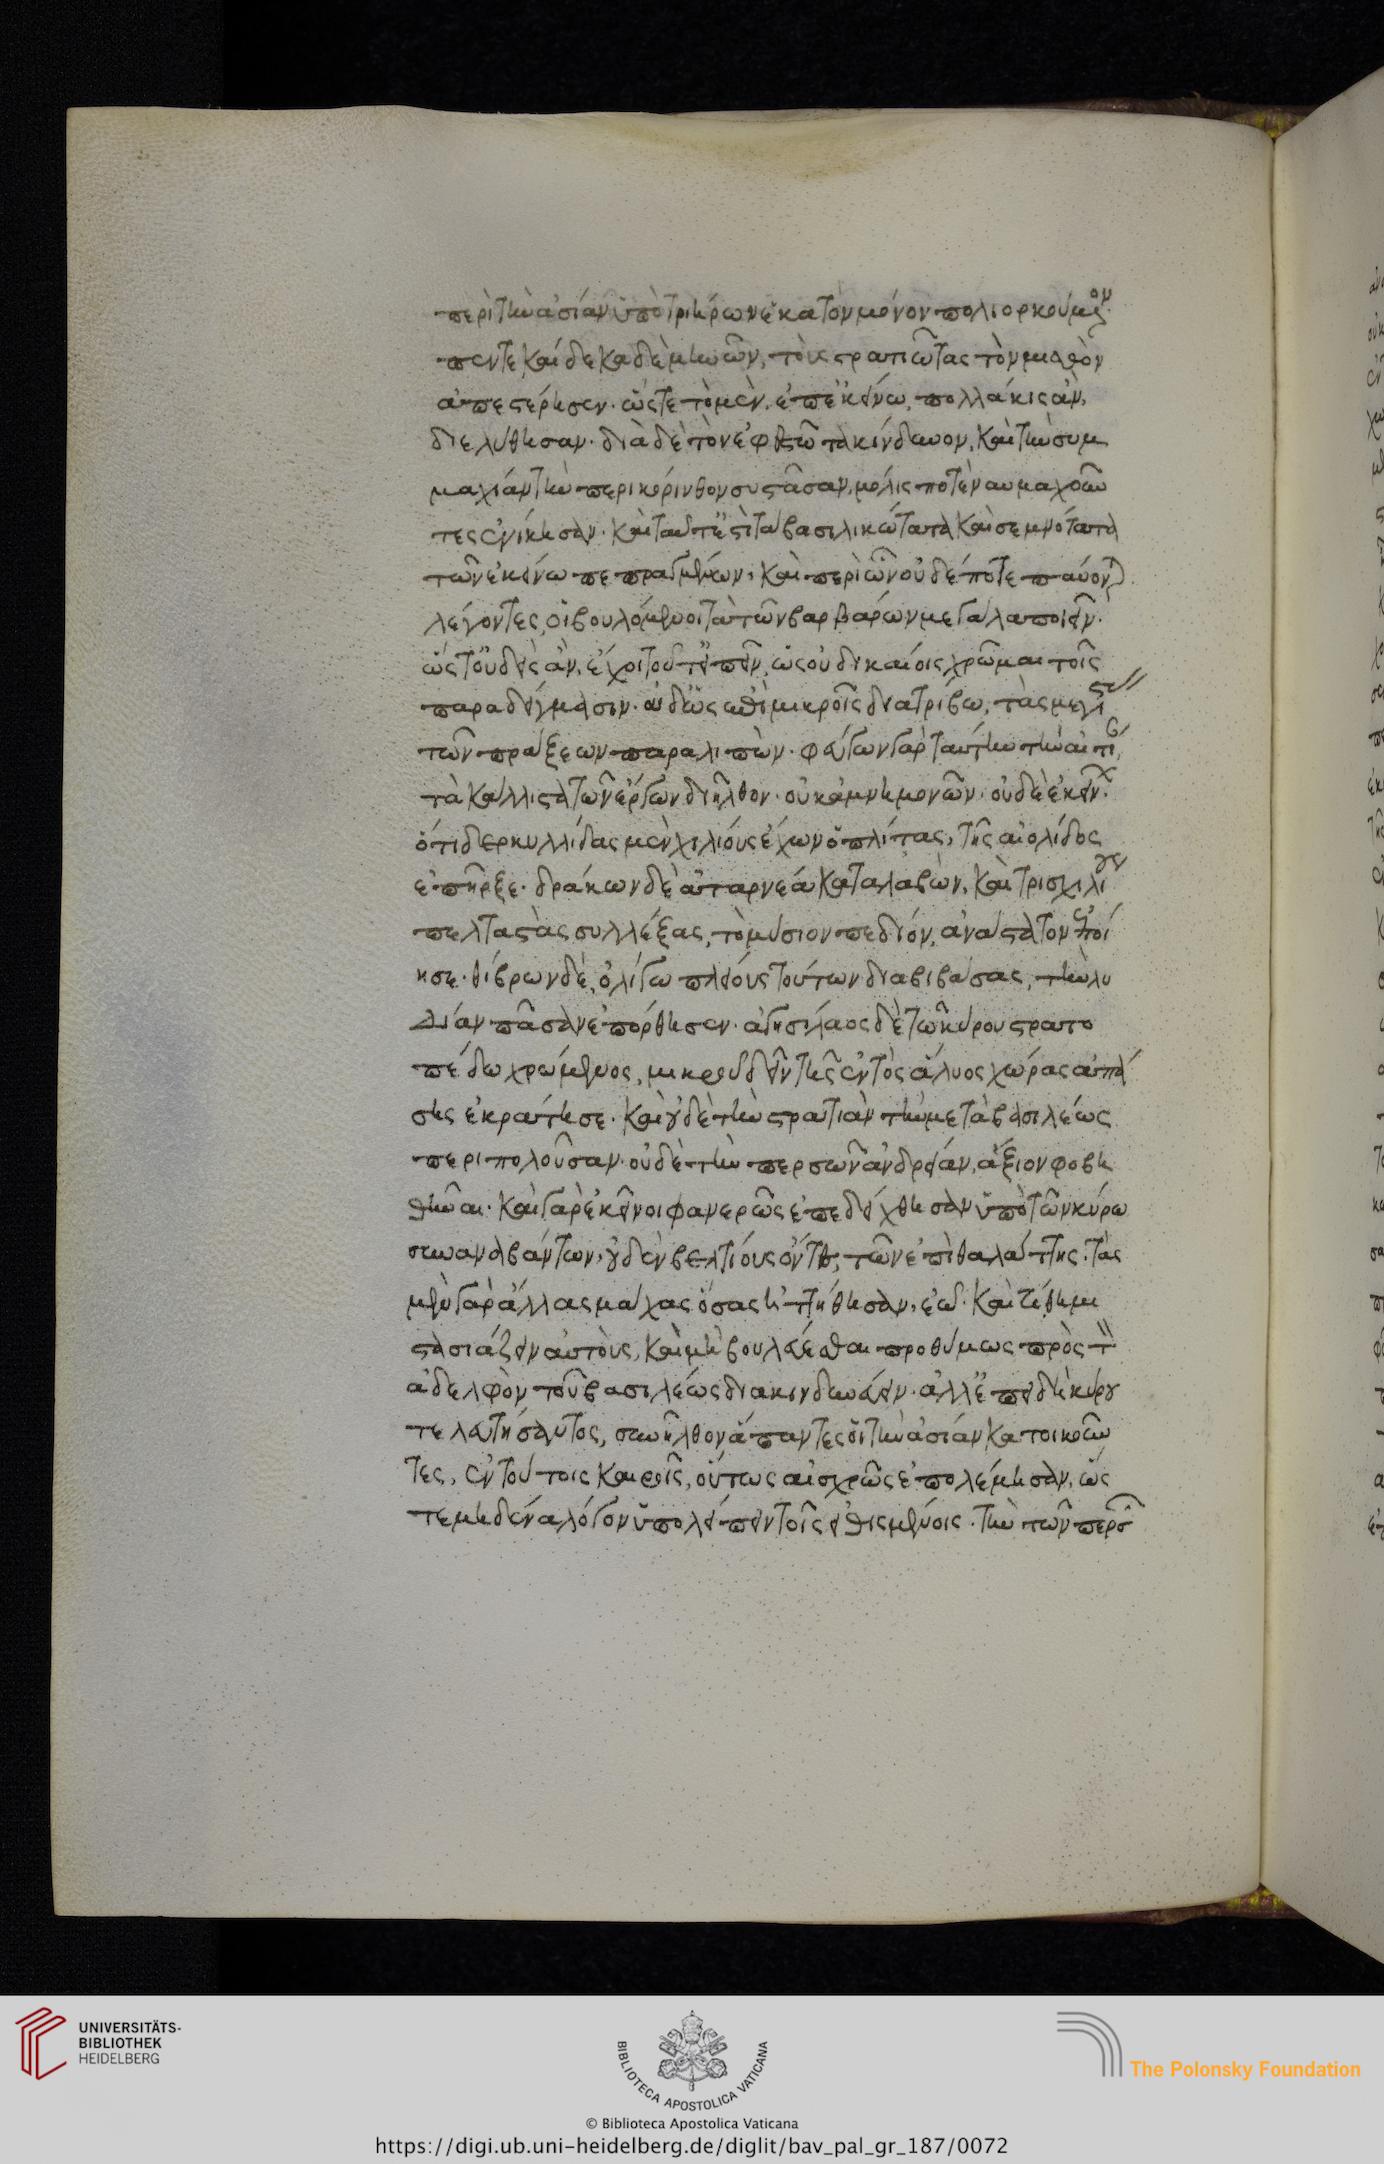 περὶ τὴν ἀσίαν ὑπὸ τριήρων ἑκατὸν μόνον πολιορκούμενον.
πεντεκαίδεκα δὲ μηνῶν, τοὺς στρατιώτας τὸν μισθὸν
ἀπεστέρησεν. ὥστε τὸ μὲν, ἐπ' ἐκείνω, πολλάκις ἂν,
διελύθησαν. διὰ δὲ τὸν ἐφεστῶτα κίνδυνον, καὶ τὴν συμ
μαχίαν τὴν περὶ κόρινθον συστᾶσαν, μόλις ποτὲ ναυμαχοῦν
τες ἐνίκησαν. καὶ ταῦτ' ἐστὶ τὰ βασιλικώτατα καὶ σεμνότατα
τῶν ἐκείνω πεπραγμένων, καὶ περὶ ὧν οὐδέποτε παύονται
λέγοντες, οἱ βουλόμενοι τὰ τῶν βαρβάρων μεγάλα ποιεῖν.
ὥστ' οὐδεὶς ἂν, ἔχοι τοῦτ' εἰπεῖν, ὡς οὐ δικαίοις χρῶμαι τοῖς
παραδείγμασιν. οὐδ' ὡς ἐπὶ μικροῖς διατρίβω, τὰς μεγίστας
τῶν πράξεων παραλιπών. φεύγων γὰρ ταύτην τὴν αἰτίαν,
τὰ κάλλιστα τῶν ἔργων διῆλθον. οὐκ ἀμνημονῶν, οὐδὲ ἐκείνων.
ὅτι δερκυλλίδας μὲν χιλίους ἔχων ὁπλίτας, τῆς αἰολίδος
ἐπῆρξε. δράκων δὲ ἀταρνέα καταλαβὼν, καὶ τρισχιλίους
πελταστὰς συλλέξας, τὸ μύσιον πεδίον, ἀνάστατον ἐποί
ησε. θίβρων δὲ, ὀλίγω πλείους τούτων διαβιβάσας, τὴν λυ
δίαν πᾶσαν ἐπόρθησεν. ἀγησίλαος δὲ τῶ κύρου στρατο
πέδω χρώμενος, μικροῦ δεῖν τῆς ἐντὸς ἅλυος χώρας ἁπά
σης ἐκράτησε. καὶ οὐδὲ τὴν στρατιὰν τὴν μετὰ βασιλέως
περιπολοῦσαν. οὐδὲ τὴν περσῶν ἀνδρείαν, ἄξιον φοβη
θῆναι. καὶ γὰρ ἐκεῖνοι φανερῶς ἐπεδείχθησαν ὑπὸ τῶν κύρω
συναναβάντων, οὐδὲν βελτίους ὄντες, τῶν ἐπὶ θαλάττης. τὰς
μὲν γὰρ ἄλλας μάχας ὅσας ἡττήθησαν, ἐῶ. καὶ τίθημι
στασιάζειν αὐτοὺς, καὶ μὴ βούλεσθαι προθύμως πρὸς τὸν
ἀδελφὸν τοῦ βασιλέως διακινδυνεύειν. ἀλλ' ἐπειδὴ κύρου
τελευτήσαντος, συνῆλθον ἅπαντες οἱ τὴν ἀσίαν κατοικοῦν
τες, ἐν τούτοις καιροῖς, οὕτως αἰσχρῶς ἐπολέμησαν, ὥς
τε μηδένα λόγον ὑπολείπειν τοῖς εἰθισμένοις. τὴν τῶν περσῶν
UNIVERSITÄTS-
BIBLIOTHEK
HEIDELBERG
BIBLIOTECA APOSTOLICA VATICANA
The Polonsky Foundation
© Biblioteca Apostolica Vaticana
https://digi.ub.uni-heidelberg.de/diglit/bav_pal_gr_187/0072